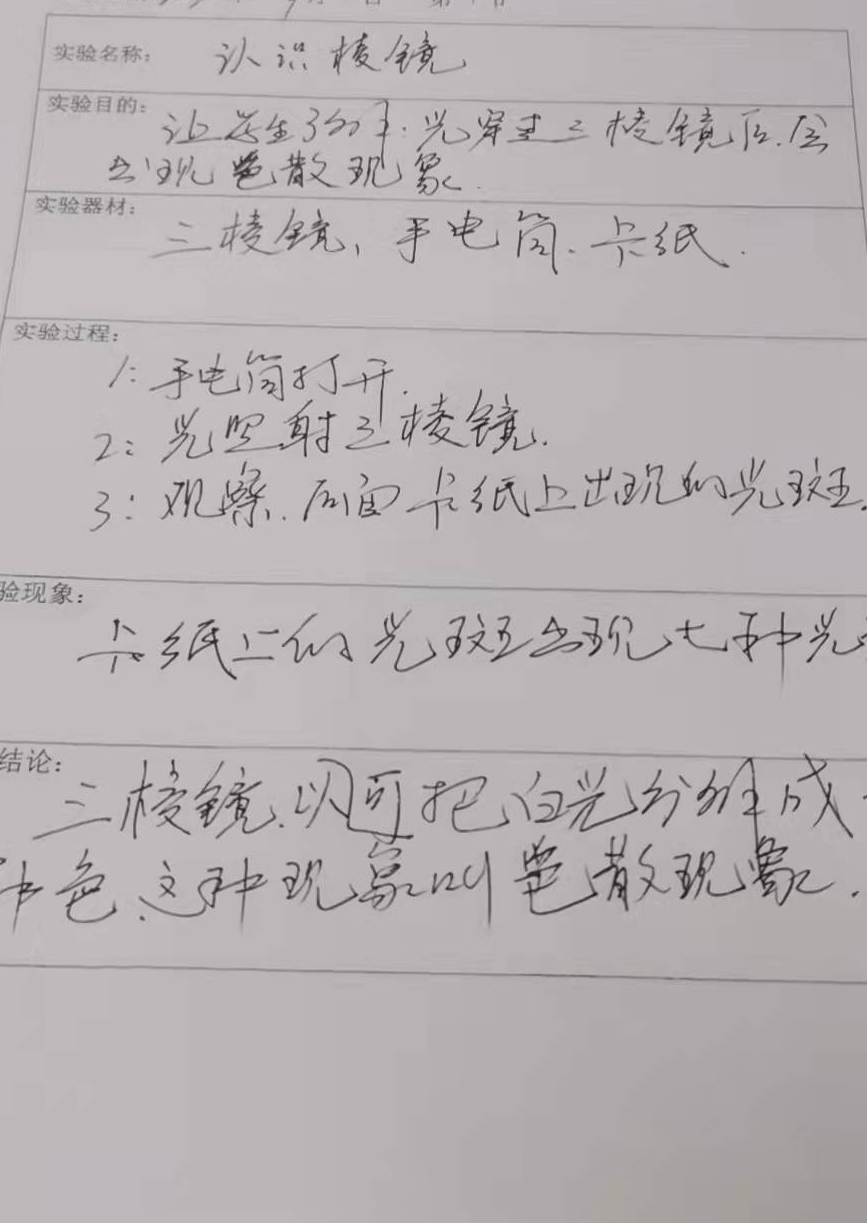 实验名称: 认识棱镜
实验目的: 让学生了解.光穿过三棱镜后.会
出现色散现象.
实验器材:
三棱镜、手电筒.卡纸.
实验过程:
1: 手电筒打开.
2: 光照射三棱镜.
3: 观察.后面卡纸上出现的光斑.
验现象:
卡纸上的光斑出现七种光
结论:
三棱镜.以可把白光分解成
种色.这种现象叫色散现象.